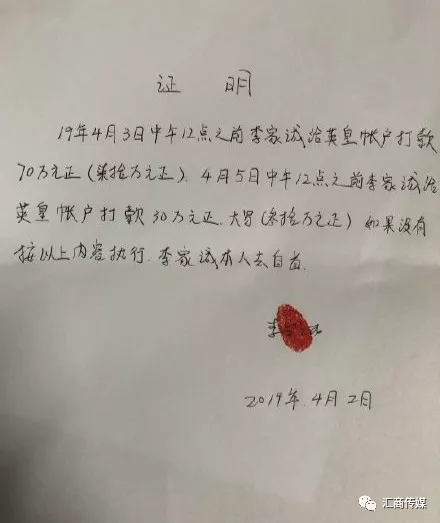 证 明
19年4月3日中午12点之前李家诚给英皇帐户打款
70万元正(柒拾万元正).4月5日中午12点之前李家诚给
英皇帐户打款30万元正.大写(叁拾万元正)如果没有
按以上内容执行.李家诚本人去自首.
李
2019年.4月2日
汇商传媒